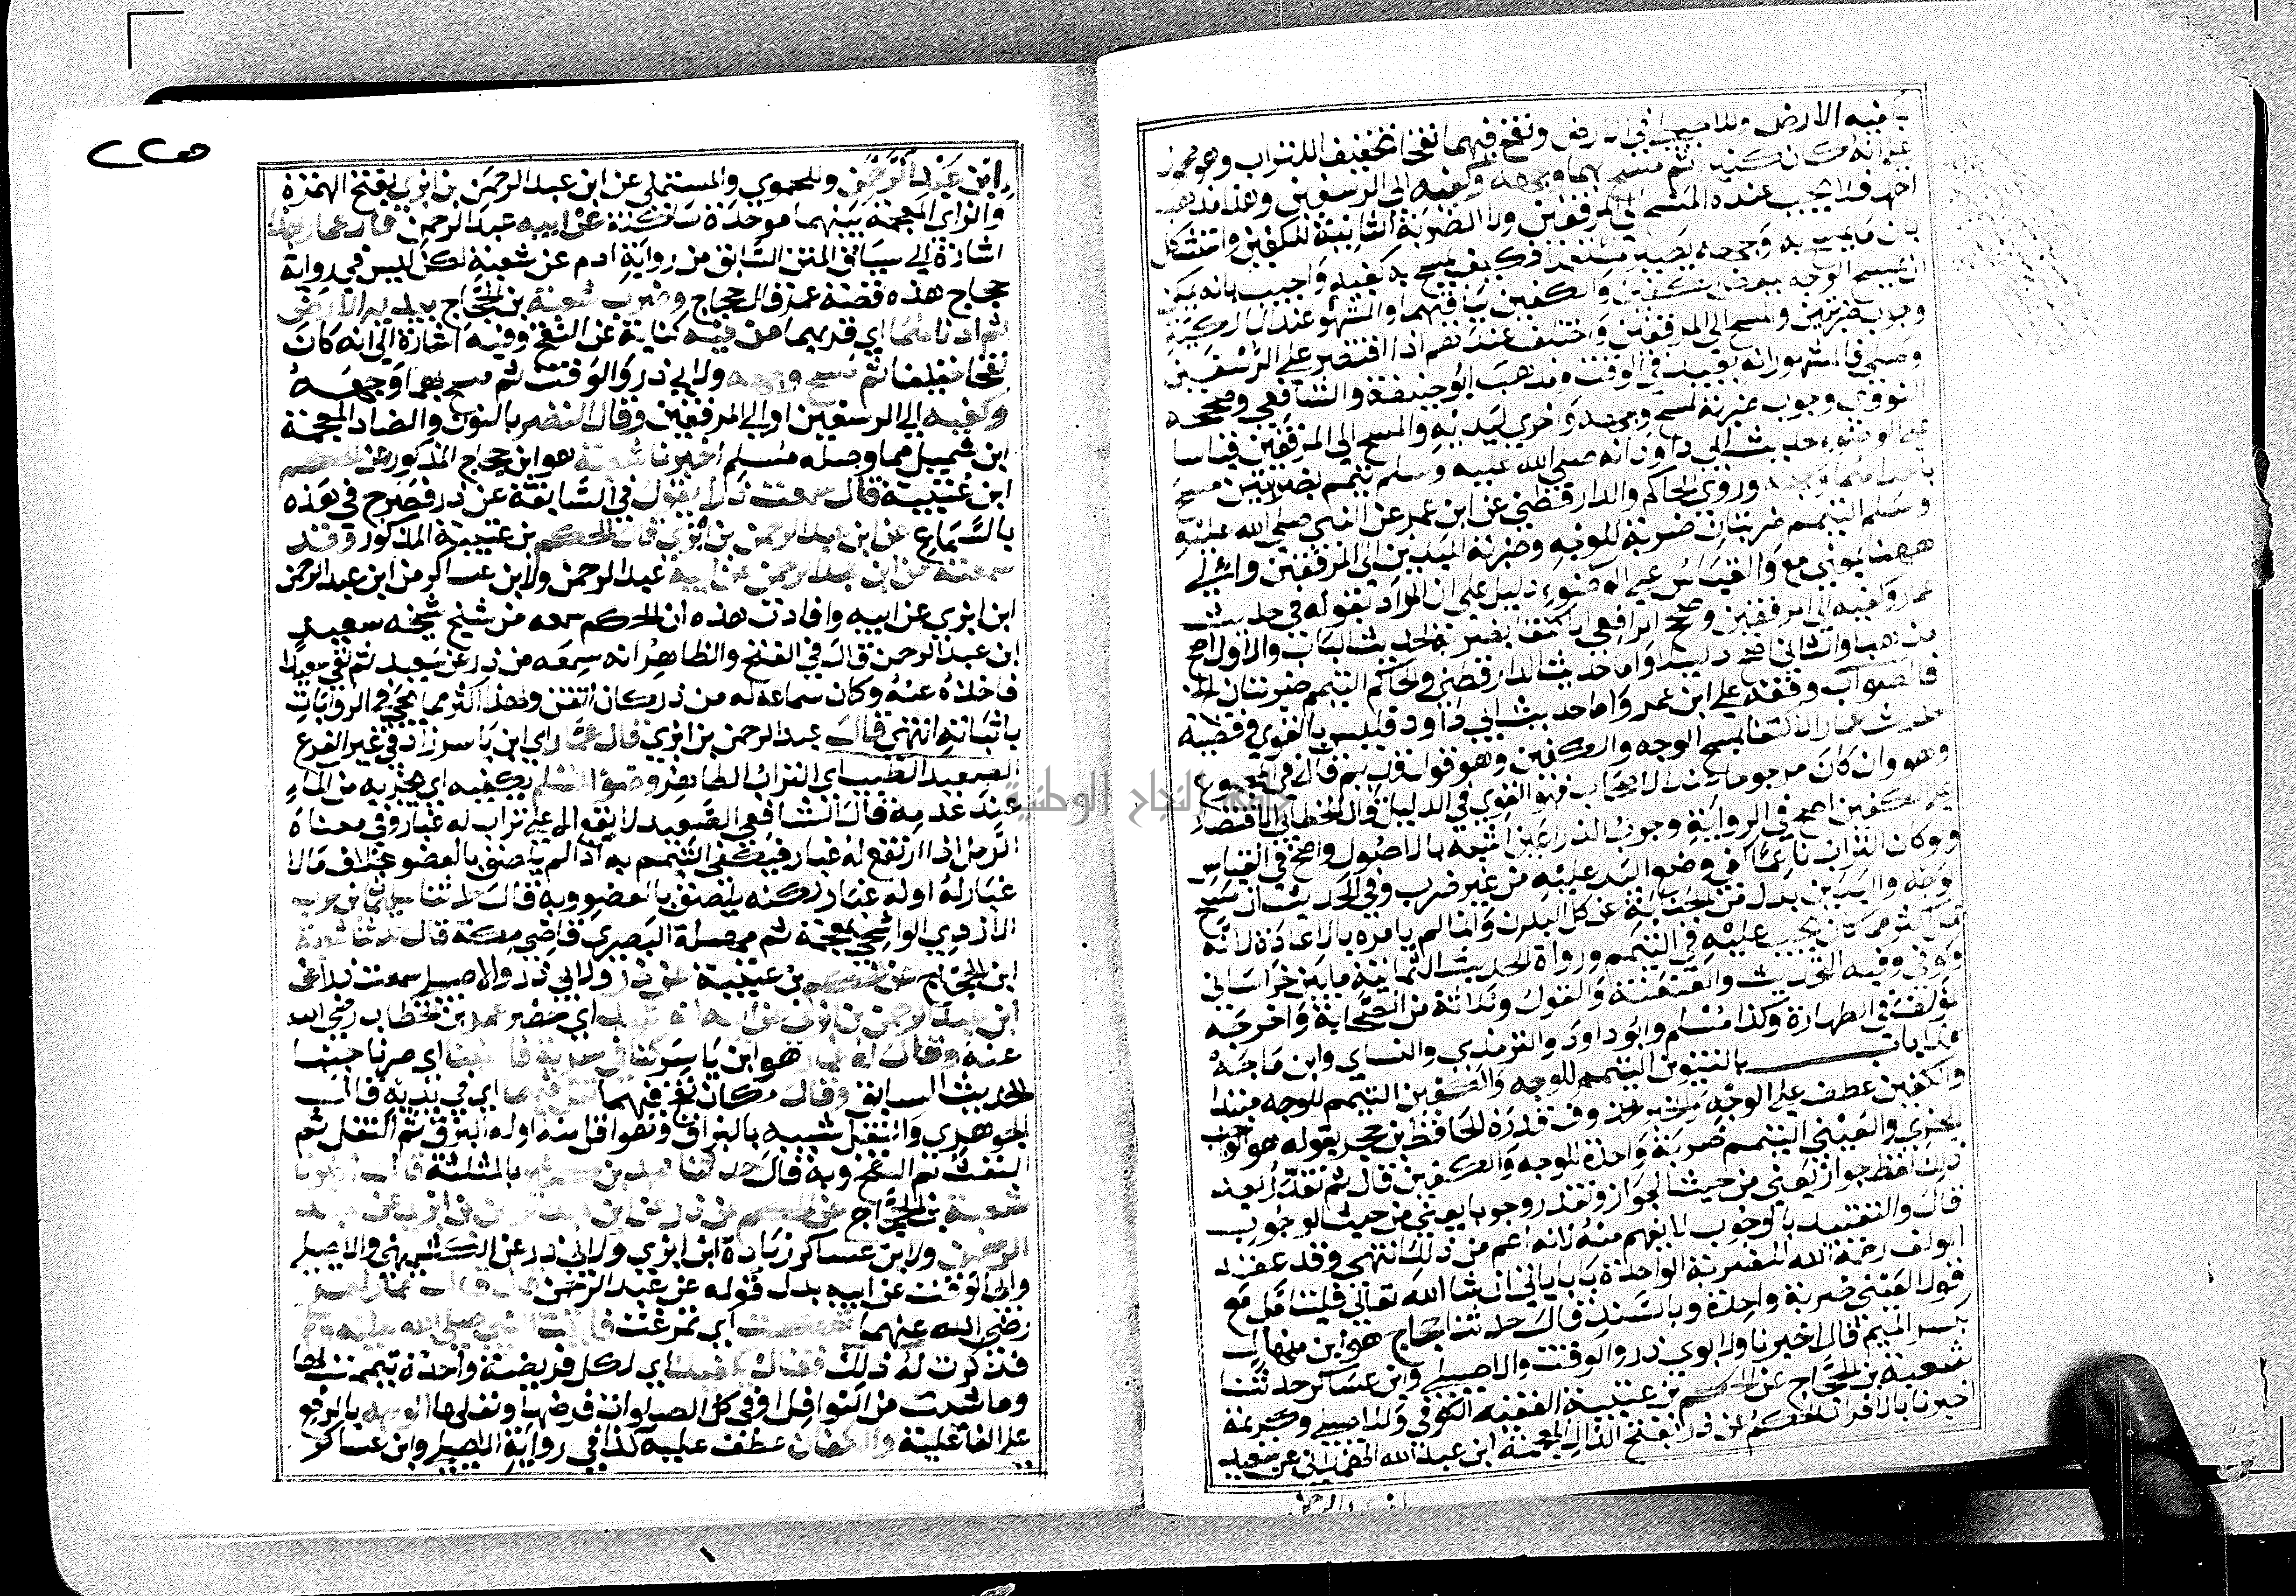 بكفيه الارض وللاصيلي في الارض ونفخ فيهما نفخا تخفيفا للتراب وهو محمول
على انه كان كثيرا ثم مسح بهما وجهه وكفيه الى الرسغين وهذا مذهب
احمد فلا يجب عنده المسح الى المرفقين ولا الضربة الثانية للكفين واستشكل
بان ما يمسح به وجهه يصير مستعملا فكيف يمسح به كفيه واجيب بانه يمكن
ان يمسح الوجه ببعض الكفين والكفين بباقيهما والمشهور عند المالكية
وجوب ضربتين والمسح الى المرفقين واختلف عندهم اذا اقتصر على الرسغين
وصلى فالمشهور انه يعيد في الوقت ومذهب ابو حنيفة والشافعي وصححه
النووي وجوب ضربة لمسح وجهه واخرى ليديه والمسح الى المرفقين قياسا
على الوضوء لحديث ابي داود انه صلى الله عليه وسلم تيمم بضربتين مسح
باحداهما وجهه وروى الحاكم والدارقطني عن ابن عمر عن النبي صلى الله عليه
وسلم التيمم ضربتان ضربة للوجه وضربة لليدين الى المرفقين والى
ههنا بمعنى مع والقياس على الوضوء دليل على ان المراد بقوله في حديث
عمار وكفيه الى المرفقين وصحح الرافعي الاكتفا بضربة لحديث الباب والاول اصح
مذهبا والثاني اصح دليلا واما حديث الدارقطني والحاكم التيمم ضربتان الخ
فالصواب وقفه على ابن عمر واما حديث ابي داود فليس بالقوي وقضية
حديث عمار الاكتفا بمسح الوجه والكفين وهو قول قديم قال في المجموع
وهو وان كان مرجوحا عند الاصحاب فهو القوي في الدليل قال الخطابي الاقتصار
على الكفين اصح في الرواية ووجوب الذراعين اشبه بالاصول واصح في القياس
ولو كان التراب ناعما كفى وضع اليد عليه من غير ضرب وفي الحديث ان مسح
الوجه واليدين بدل من الجنابة عن كل البدن وانما لم يامره بالاعادة لانه
عمل اكثر مما كان يجب عليه في التيمم ورواة الحديث الثمانية ما بين خراساني
وكوفي وفيه التحديث والعنعنة والقول وثلاثة من الصحابة واخرجه
المؤلف في الطهارة وكذا مسلم وابو داود والترمذي والنساي وابن ماجه
هذا باب بالتنوين التيمم للوجه والكفين التيمم للوجه مبتدا
والكفين عطف على الوجه والخبر محذوف قدره الحافظ بن حجر بقوله هو الواجب
المجزي والعيني التيمم ضربة واحدة للوجه والكفين قال ثم نقدر بعد
ذلك لفظ جواز يعني من حيث الجواز ونقدر وجوبا يعني من حيث الوجوب
قال والتقييد بالوجوب لا يفهم منه لانه اعم من ذلك انتهى وقد عقد
المولف رحمه الله للضربة الواحدة بابا ياتي ان شا الله تعالى فليتامل مع
قول العيني ضربة واحدة وبالسند قال حدثنا حجاج هو ابن منهال
بكسر الميم قال اخبرنا ولابوي ذر والوقت والاصيلي وابن عساكر حدثنا
شعبة بن الحجاج عن الحكم بن عتيبة الفقيه الكوفي وللاصيلي وكريمة
اخبرنا بالافراد الحكم عن ذر بفتح الذال المعجمة ابن عبد الله الهمداني عن سعيد
ابن عبد الرحمن
٢٢٥
ابن عبد الرحمن وللحموي والمستملي عن ابن عبد الرحمن بن ابزي بفتح الهمزة
والزاي المعجمة بينهما موحدة ساكنة عن ابيه عبد الرحمن قال عمار بهذا
اشارة الى سياق المتن السابق من رواية ادم عن شعبة لكن ليس في رواية
حجاج هذه قصة عمر قال حجاج وضرب شعبة بن الحجاج بيديه الارض
ثم ادناهما اي قربهما من فيه كناية عن النفخ وفيه اشارة الى انه كان
نفخا خفيفا ثم مسح وجهه ولابي ذر والوقت ثم مسح بهما وجهه
وكفيه الى الرسغين او الى المرفقين وقال النضر بالنون والضاد المعجمة
ابن شميل مما وصله مسلم اخبرنا شعبة هو ابن حجاج المذكور عن الحكم
ابن عتيبة قال سمعت ذرا يقول في السابقة عن ذر فصرح في هذه
بالسماع عن ابن عبد الرحمن بن ابزي قال الحكم بن عتيبة المذكور وقد
سمعته من ابن عبد الرحمن عن ابيه عبد الرحمن ولابن عساكر من ابن عبد الرحمن
ابن ابزي عن ابيه وافادت هذه ان الحكم سمعه من شيخ شيخه سعيد
ابن عبد الرحمن قال في الفتح والظاهر انه سمعه من ذر عن سعيد ثم لقي سعيدا
فاخذه عنه وكان سماعه له من ذر كان اتقن ولهذا اكثر مما يجي في الروايات
باثباته انتهى قال عبد الرحمن بن ابزي قال عمار اي ابن ياسر زاد في غير الفرع
الصعيد الطيب اي التراب الطاهر وضو المسلم يكفيه اي يجزيه من الماء
عند عدمه قال الشافعي الصعيد لا يقع الا على تراب له غبار وفي معناه
الرمل اذا ارتفع له غبار فيكفي التيمم به اذا لم يلصق بالعضو بخلاف ما لا
غبار له او له غبار لكنه يلصق بالعضو وبه قال حدثنا سليمان بن حرب
الازدي الواشحي بمعجمة ثم مهملة البصري قاضي مكة قال حدثنا شعبة
ابن الحجاج عن الحكم بن عتيبة عن ذر ولابي ذر والاصيلي سمعت ذرا عن
ابن عبد الرحمن بن ابزي عن ابيه انه شهد اي حضر عمر بن الخطاب رضي الله
عنه وقال له عمار هو ابن ياسر كنا في سرية فاجنبنا اي صرنا جنبا
الحديث السابق وقال مكان نفخ فيهما تفل فيهما اي في يديه قال
الجوهري والتفل شبيه بالبزاق وهو اقل منه اوله البزق ثم التفل ثم
النفث ثم النفخ وبه قال حدثنا محمد بن كثير بالمثلثة قال اخبرنا
شعبة بن الحجاج عن الحكم عن ذر عن ابن عبد الرحمن بن ابزي عن عبد
الرحمن ولابن عساكر زيادة ابن ابزي ولابي ذر عن الكشميهني والاصيلي
وابي الوقت عن ابيه بدل قوله عن عبد الرحمن قال قال عمار لعمر
رضي الله عنهما تمعكت اي تمرغت فاتيت النبي صلى الله عليه وسلم
فذكرت له ذلك فقال يكفيك اي لكل فريضة واحدة تيممت لها
وما شيت من النوافل او في كل الصلوات فرضها ونفلها الوجه بالرفع
على الفاعلية والكفان عطف عليه كذا في رواية الاصيلي وابن عساكر